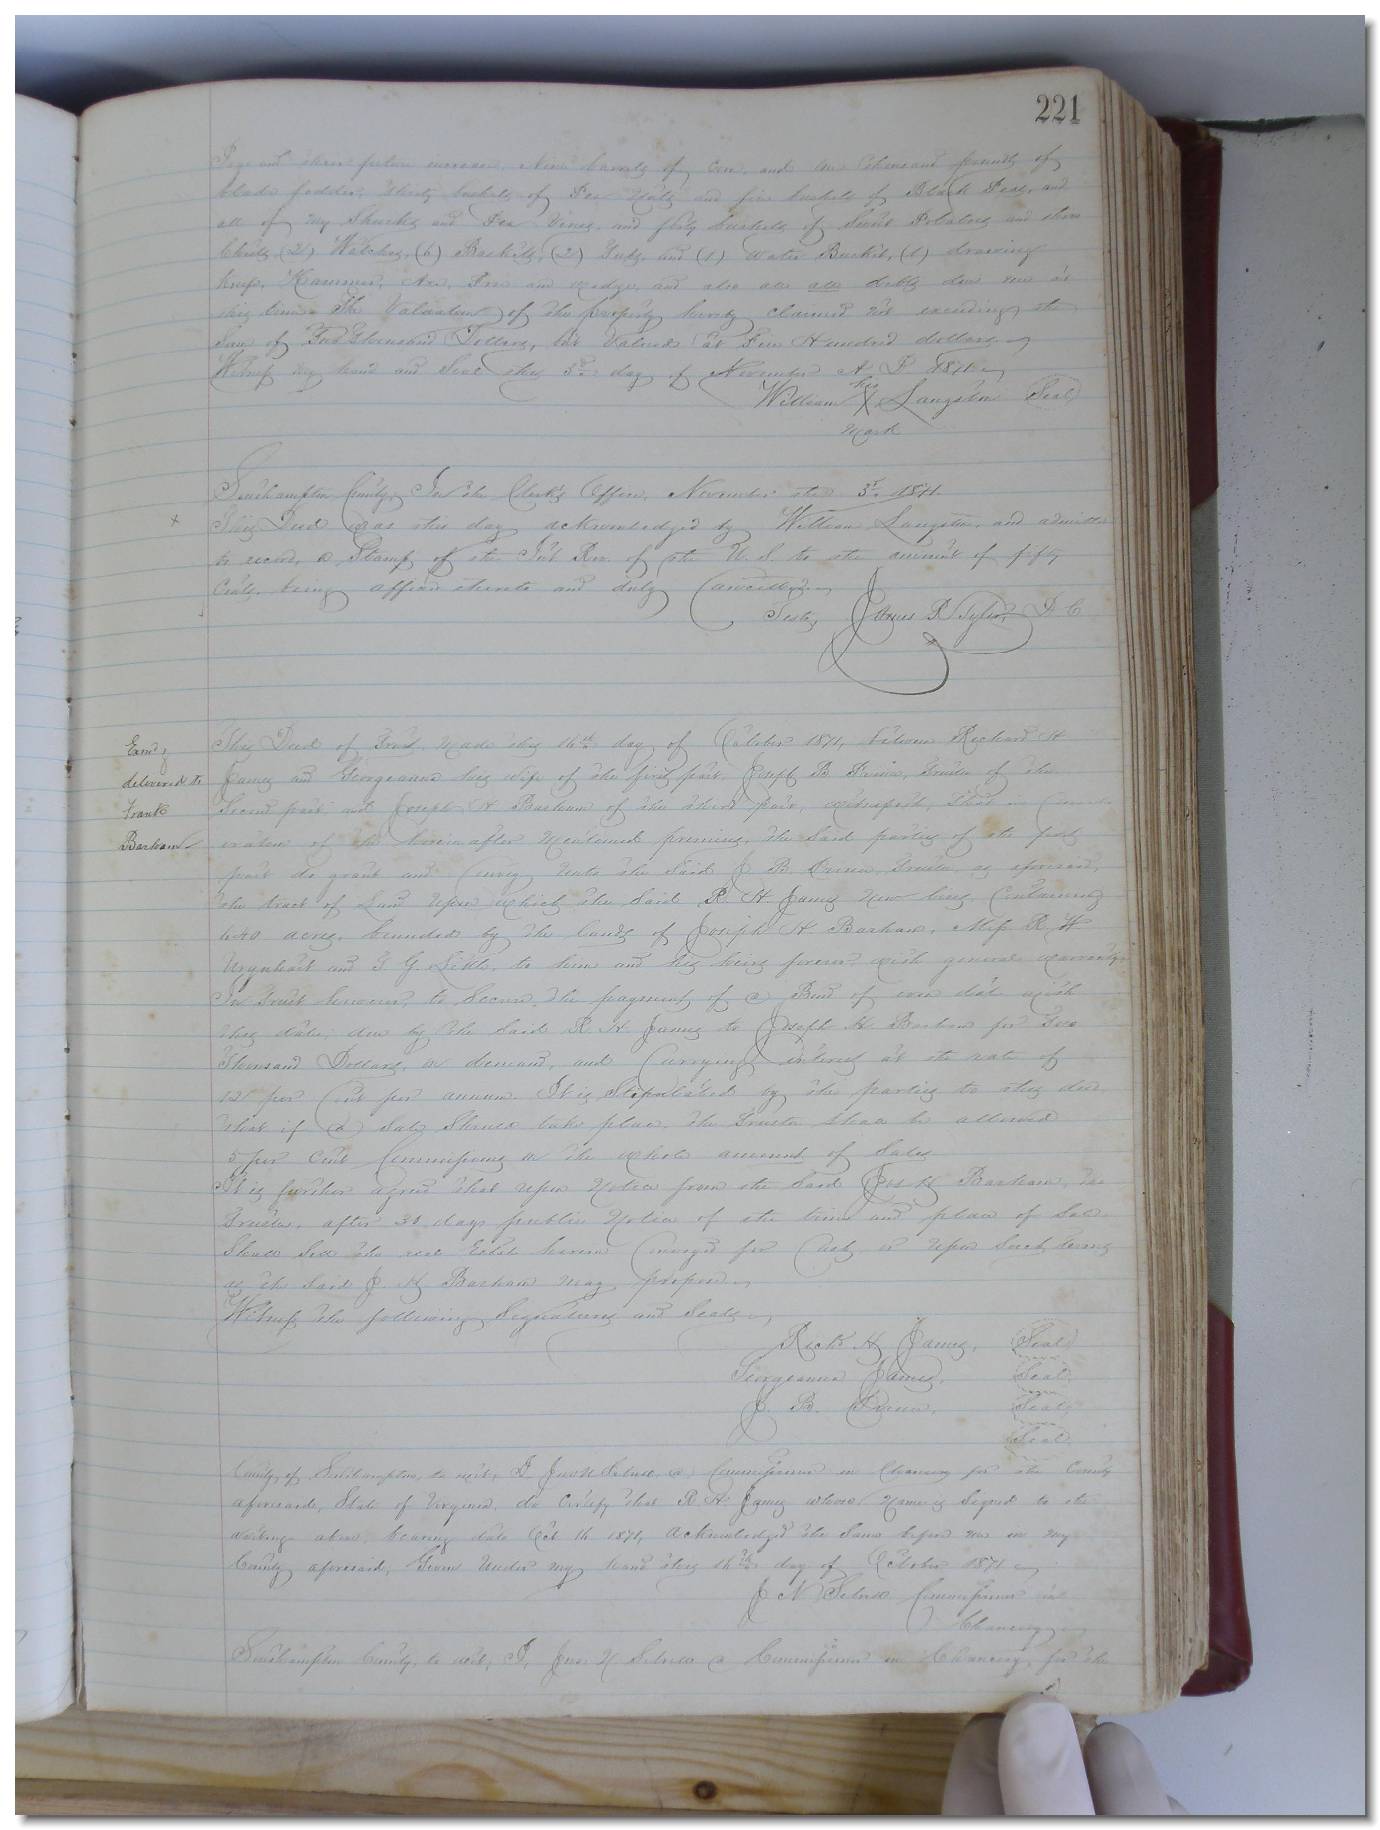 221
Pigs and their future increase, Nine barrels of corn, and one thousand pounds of
blade fodder, thirty bushels of Pea Nuts and five bushels of Black Peas, and
all of my Shucks and Pea Vines, and fifty bushels of Sweet Potatoes and three
(2) Watches, (6) Baskets, (2) and (1) Water Bucket, (1) drawing
Knife, Hammer, Axe, and wedge, and also all all debts due me at
this time. The Valuation of the property hereby claimed not exceeding the
Sum of Two Thousand Dollars, but Valued at Five Hundred dollars
Witness my hand and Seal this 3rd day of November A D 1871
William his X Langston Seal
Mark
Southampton County, In the Clerk's Office, November the 3rd 1871.
x This Deed was this day acknowledged by William Langston, and admitted
to record, a Stamp of the Int Rev. of the U. S. to the amount of fifty
Cents being affixed thereto and duly Cancelled
Teste, James R Tyler, D C
Exmd,
delivered to
Frank
Barham
This Deed of Trust, Made this 16th day of October 1871, between Richard H
James and Georgeanna his wife of the first part, Joseph B Prince, Trustee of the
Second part, and Joseph H Barham of the third part, witnesseth, that in Consid-
eration of the hereinafter Mentioned premises, the Said parties of the first
part do grant and Convey unto the Said J B. Prince, Trustee, as aforesaid,
the tract of Land upon which the Said R. H James Now lives, Containing
640 acres, bounded by the lands of Joseph H Barham, Miss R W
Urquhart and to him and his heirs forever, with general warranty,
In trust however, to Secure the payment of a Bond of even date with
this date, due by the Said R. H James to Joseph H Barham for Two
Thousand Dollars, on demand, and Carrying interest at the rate of
12 per Cent per annum. It is Stipulated by the parties to this deed
that if a Sale Should take place, the Trustee Shall be allowed
5 per Cent Commissions on the whole amount of Sales
It is further agreed that upon Notice from the Said Jos H Barham, the
Trustee, after 30 days public Notice of the time and place of Sale
Shall Sell the real Estate herein Conveyed for Cash, or upon Such terms
as the Said J H Barham may propose
Witness the following Signatures and Seals
Richd H James, Seal
Georgeanna James, Seal
J. B. Prince, Seal
Seal
County of Southampton, to wit, I Jno N Sebrell a Commissioner in Chancery for the County
aforesaid, State of Virginia, do Certify that R H James whose Name is Signed to the
writing above bearing date Oct 16 1871, acknowledged the Same before me in my
County aforesaid, Given Under my hand this 16th day of October 1871
J N Sebrell Commissioner in
Chancery
Southampton County, to wit, I, Jno. N Sebrell a Commissioner in Chancery, for the